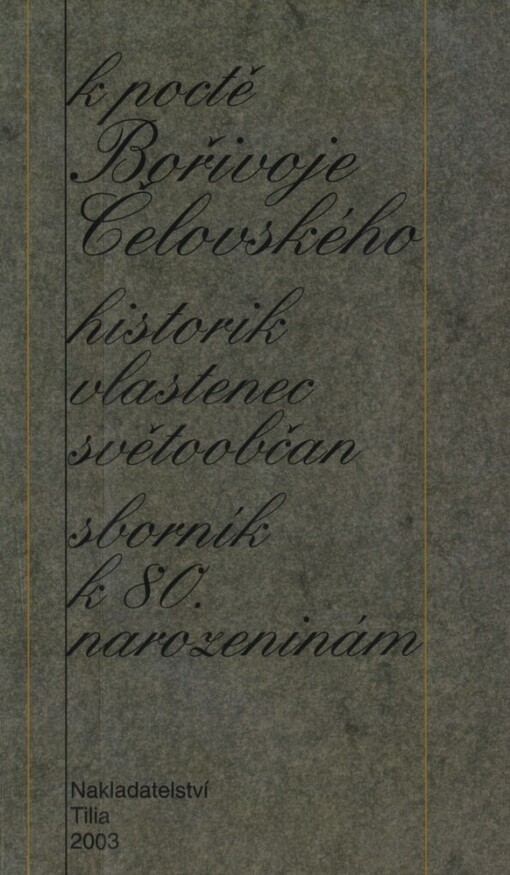 k poctě
Bořivoje
Čelovského
historik
vlastenec
světoobčan
sborník
k 80.
narozeninám
Nakladatelství
Tilia
2003